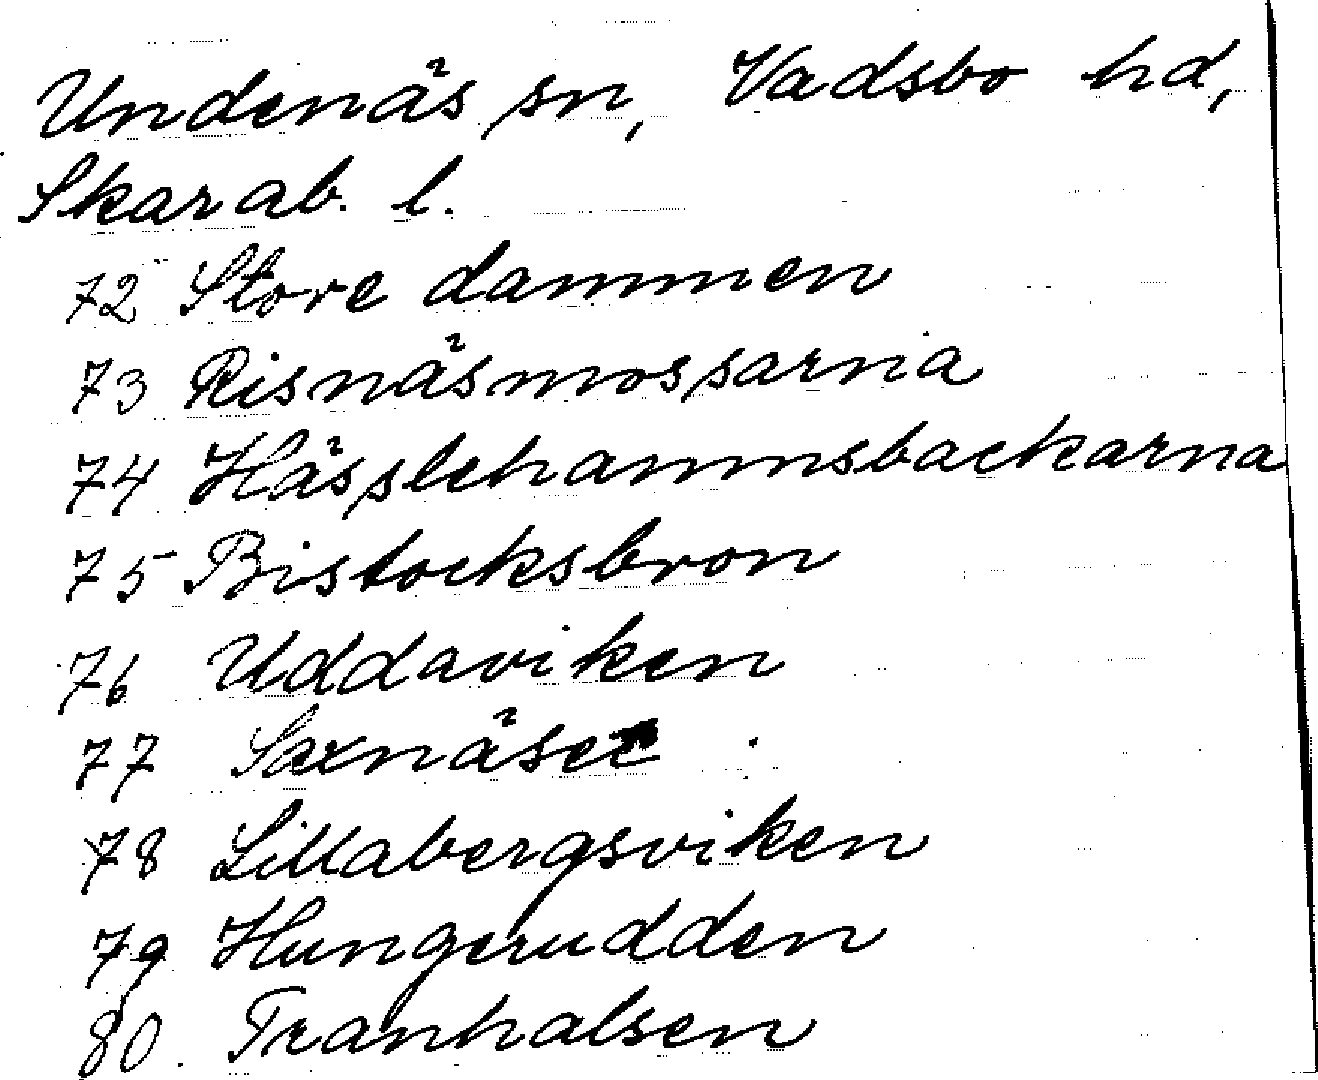 Undenäs sn, Vadsbo hd,
Skarab. l.
72 Store dammen
73 Risnäsmossarna
74 Hässlehamnsbackarna
75 Bistocksbron
76 Uddaviken
77
78 Lillabergsviken
79 Hungerudden
80. Tranhalsen